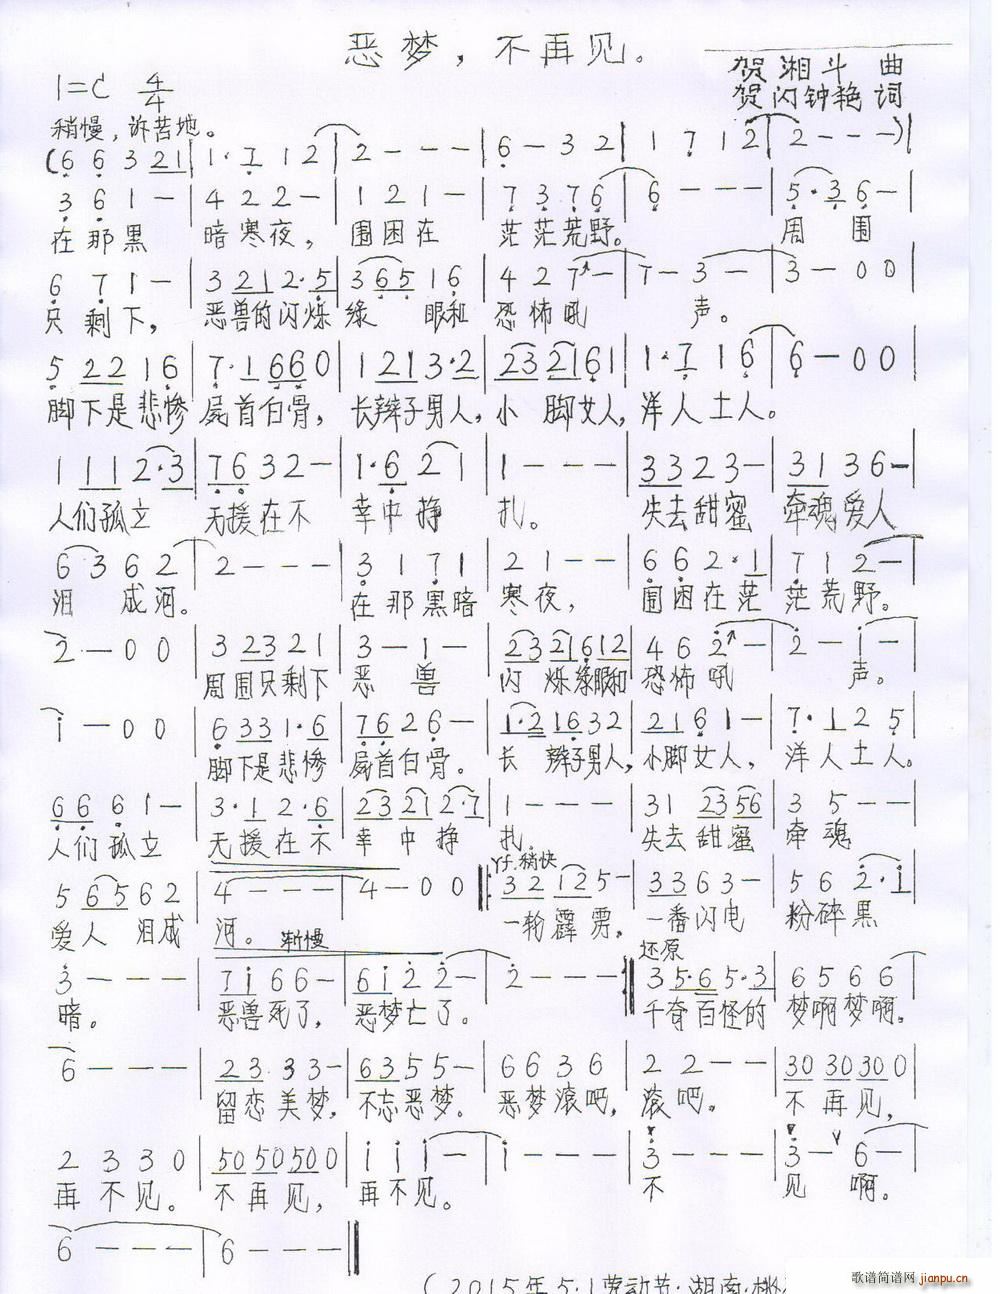 恶梦，不再见。
贺湘斗 曲
贺闪钟艳 词
1=C 4/4
稍慢，诉苦地。
(6 6 3 2 1 | 1· 7 1 2 | 2 - - - | 6 - 3 2 | 1 7 1 2 | 2 - - -) |
3 6 1 - | 4 2 2 - | 1 2 1 - | 7 3 7 6 | 6 - - - | 5·3 6 - |
在那黑 暗寒夜，围困在 茫茫荒野。 周围
6 7 1 - | 3 2 1 2·5 | 3 6 5 1 6 | 4 2 7 - | 7 - 3 - | 3 - 0 0 |
只剩下，恶兽的闪烁绿 眼和 恐怖吼 声。
5 2 2 1 6 | 7·1 6 6 0 | 1 2 1 3·2 | 2 3 2 1 6 1 | 1·7 1 6 | 6 - 0 0 |
脚下是悲惨 屍首白骨，长辫子男人，小脚女人，洋人土人。
1 1 1 2·3 | 7 6 3 2 - | 1·6 2 1 | 1 - - - | 3 3 2 3 - | 3 1 3 6 - |
人们孤立 无援在不 幸中挣 扎。 失去甜蜜 牵魂爱人
6 3 6 2 | 2 - - - | 3 1 7 1 | 2 1 - - | 6 6 2·1 | 7 1 2 - |
泪 成河。 在那黑暗 寒夜， 围困在茫 茫荒野。
2 - 0 0 | 3 2 3 2 1 | 3 - 1 - | 2 3 2 1 6 1 2 | 4 6 2 - | 2 - 1 - |
周围只剩下 恶 兽 闪 烁绿眼和 恐怖吼 声。
1 - 0 0 | 6 3 3 1·6 | 7 6 2 6 - | 1·2 1 6 3 2 | 2 1 6 1 - | 7·1 2 5 |
脚下是悲惨 屍首白骨。 长 辫子男人，小脚女人，洋人土人。
6 6 6 1 - | 3·1 2·6 | 2 3 2 1 2·7 | 1 - - - | 3 1 2 3 5 6 | 3 5 - - |
人们孤立 无援在不 幸 中 挣 扎。 失去甜蜜 牵魂
稍快
5 6 5 6 2 | 4 - - - | 4 - 0 0 ‖: 3 2 1 2 5 - | 3 3 6 3 - | 5 6 2·1 |
爱人 泪成 河。 渐慢 一轮霹雳，一番闪电 粉碎黑
还原
3 - - - | 7 1 6 6 - | 6 1 2 2 - | 2 - - - :‖ 3 5·6 5·3 | 6 5 6 6 |
暗。 恶兽死了，恶梦亡了。 千奇百怪的 梦啊梦啊。
6 - - - | 2 3 3 3 - | 6 3 5 5 - | 6 6 3 6 | 2 2 - - | 30 30 30 0 |
留恋美梦，不忘恶梦。恶梦滚吧，滚吧。 不再见，
2 3 3 0 | 50 50 50 0 | 1 1 1 - | 1 - - - | 3 - - - | 3 - 6 - |
再不见。 不再见，再不见。 不 见 啊。
6 - - - | 6 - - - ‖
(2015年5·1劳动节·湖南·桃
歌谱简谱网 jianpu.cn